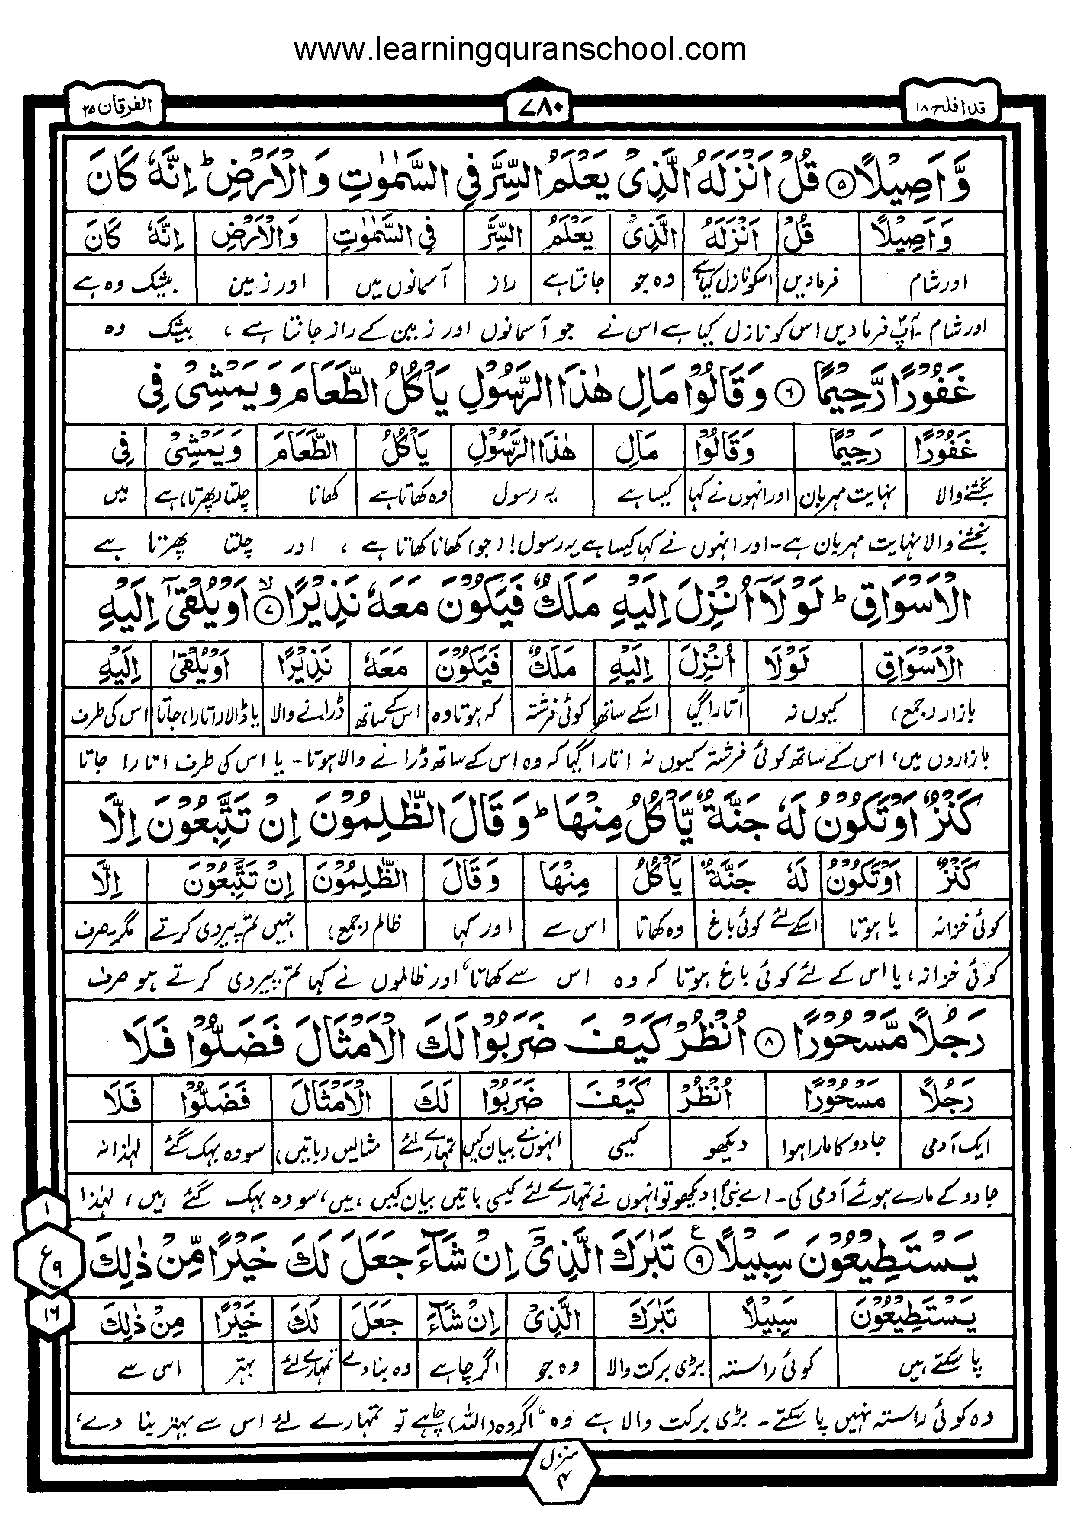 www.learningquranschool.com
قد افلح ۱۸
۷۸۰
الفرقان ۲۵
وَّاَصِيْلًا ۵ قُلْ اَنْزَلَهُ الَّذِىْ يَعْلَمُ السِّرَّ فِى السَّمٰوٰتِ وَالْاَرْضِ ؕ اِنَّهٗ كَانَ
وَاَصِيْلًا قُلْ اَنْزَلَهُ الَّذِىْ يَعْلَمُ السِّرَّ فِى السَّمٰوٰتِ وَالْاَرْضِ اِنَّهٗ كَانَ
اور شام فرمادیں اسکو نازل کیا ہے وہ جو جانتا ہے راز آسمانوں میں اور زمین بیشک وہ ہے
اور شام ۔ آپؐ فرمادیں اس کو نازل کیا ہے اس نے جو آسمانوں اور زمین کے راز جانتا ہے ، بیشک وہ
غَفُوْرًا رَّحِيْمًا ۶ وَقَالُوْا مَالِ هٰذَا الرَّسُوْلِ يَاْكُلُ الطَّعَامَ وَيَمْشِىْ فِى
غَفُوْرًا رَحِيْمًا وَقَالُوْا مَالِ هٰذَا الرَّسُوْلِ يَاْكُلُ الطَّعَامَ وَيَمْشِىْ فِى
بخشنے والا نہایت مہربان اور انہوں نے کہا کیسا ہے یہ رسول وہ کھاتا ہے کھانا چلتا (پھرتا) ہے میں
بخشنے والا نہایت مہربان ہے ۔ اور انہوں نے کہا کیسا ہے یہ رسول! (جو) کھانا کھاتا ہے ، اور چلتا پھرتا ہے
الْاَسْوَاقِ ؕ لَوْلَاۤ اُنْزِلَ اِلَيْهِ مَلَكٌ فَيَكُوْنَ مَعَهٗ نَذِيْرًا ۙ ۷ اَوْ يُلْقٰۤى اِلَيْهِ
الْاَسْوَاقِ لَوْلَا اُنْزِلَ اِلَيْهِ مَلَكٌ فَيَكُوْنَ مَعَهٗ نَذِيْرًا اَوْ يُلْقٰى اِلَيْهِ
بازار (جمع) کیوں نہ اُتارا گیا اسکے ساتھ کوئی فرشتہ کہ ہوتا وہ اس کے ساتھ ڈرانے والا یا ڈالا (اتارا) جاتا اس کی طرف
بازاروں میں ، اس کے ساتھ کوئی فرشتہ کیوں نہ اتارا گیا کہ وہ اس کے ساتھ ڈرانے والا ہوتا ۔ یا اس کی طرف اتارا جاتا
كَنْزٌ اَوْ تَكُوْنُ لَهٗ جَنَّةٌ يَّاْكُلُ مِنْهَا ؕ وَقَالَ الظّٰلِمُوْنَ اِنْ تَتَّبِعُوْنَ اِلَّا
كَنْزٌ اَوْ تَكُوْنُ لَهٗ جَنَّةٌ يَاْكُلُ مِنْهَا وَقَالَ الظّٰلِمُوْنَ اِنْ تَتَّبِعُوْنَ اِلَّا
کوئی خزانہ یا ہوتا اسکے لئے کوئی باغ وہ کھاتا اس سے اور کہا ظالم (جمع) نہیں تم پیروی کرتے مگر (صرف
کوئی خزانہ ، یا اس کے لئے کوئی باغ ہوتا کہ وہ اس سے کھاتا ، اور ظالموں نے کہا تم پیروی کرتے ہو صرف
رَجُلًا مَّسْحُوْرًا ۸ اُنْظُرْ كَيْفَ ضَرَبُوْا لَكَ الْاَمْثَالَ فَضَلُّوْا فَلَا
رَجُلًا مَسْحُوْرًا اُنْظُرْ كَيْفَ ضَرَبُوْا لَكَ الْاَمْثَالَ فَضَلُّوْا فَلَا
ایک آدمی جادو کا مارا ہوا دیکھو کیسی انہوں نے بیان کیں تمہارے لئے مثالیں (باتیں) سو وہ بہک گئے لہٰذا نہ
جادو کے مارے ہوئے آدمی کی ۔ اے نبیؐ! دیکھو تو انہوں نے تمہارے لئے کیسی باتیں بیان کیں ہیں ، سو وہ بہک گئے ہیں ، لہٰذا
يَسْتَطِيْعُوْنَ سَبِيْلًا ۹ ع تَبٰرَكَ الَّذِىْۤ اِنْ شَآءَ جَعَلَ لَكَ خَيْرًا مِّنْ ذٰلِكَ
۱
ع ۹
۱۶
يَسْتَطِيْعُوْنَ سَبِيْلًا تَبٰرَكَ الَّذِىْ اِنْ شَآءَ جَعَلَ لَكَ خَيْرًا مِنْ ذٰلِكَ
پا سکتے ہیں کوئی راستہ بڑی برکت والا وہ جو اگر چاہے وہ بنا دے تمہارے لئے بہتر اس سے
وہ کوئی راستہ نہیں پا سکتے ۔ بڑی برکت والا ہے وہ ، اگر وہ (اللہ) چاہے تو تمہارے لئے اس سے بہتر بنا دے ،
منزل
۴